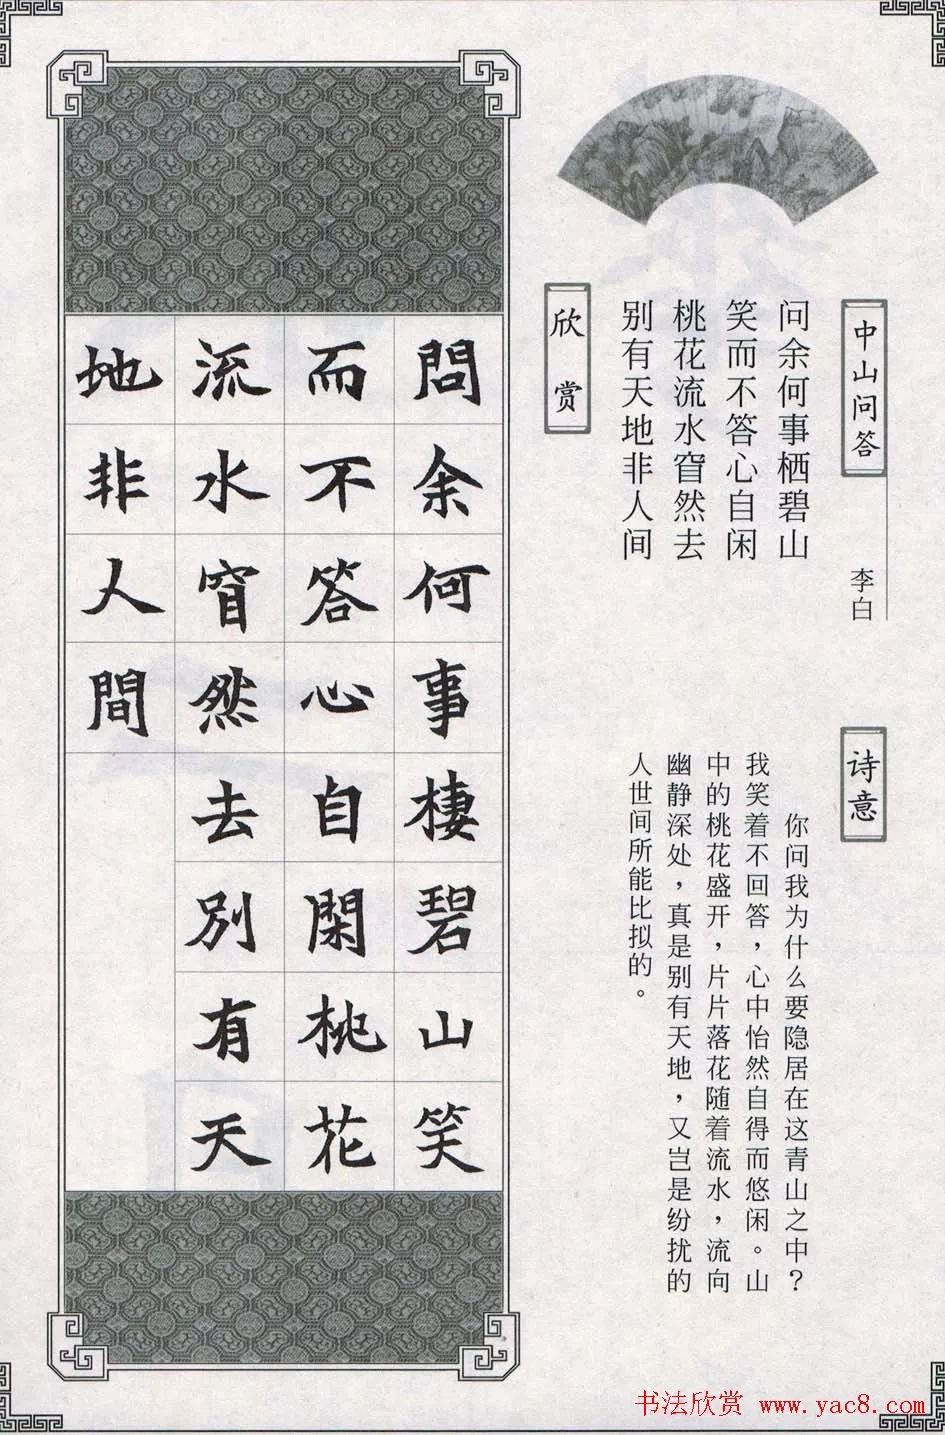 中山问答
李白
问余何事栖碧山
笑而不答心自闲
桃花流水窅然去
别有天地非人间
欣赏
诗意
你问我为什么要隐居在这青山之中？
我笑着不回答，心中怡然自得而悠闲。山
中的桃花盛开，片片落花随着流水，流向
幽静深处，真是别有天地，又岂是纷扰的
人世间所能比拟的。
問余何事棲碧山笑
而不答心自閑桃花
流水窅然去別有天
地非人間
书法欣赏 www.yac8.com